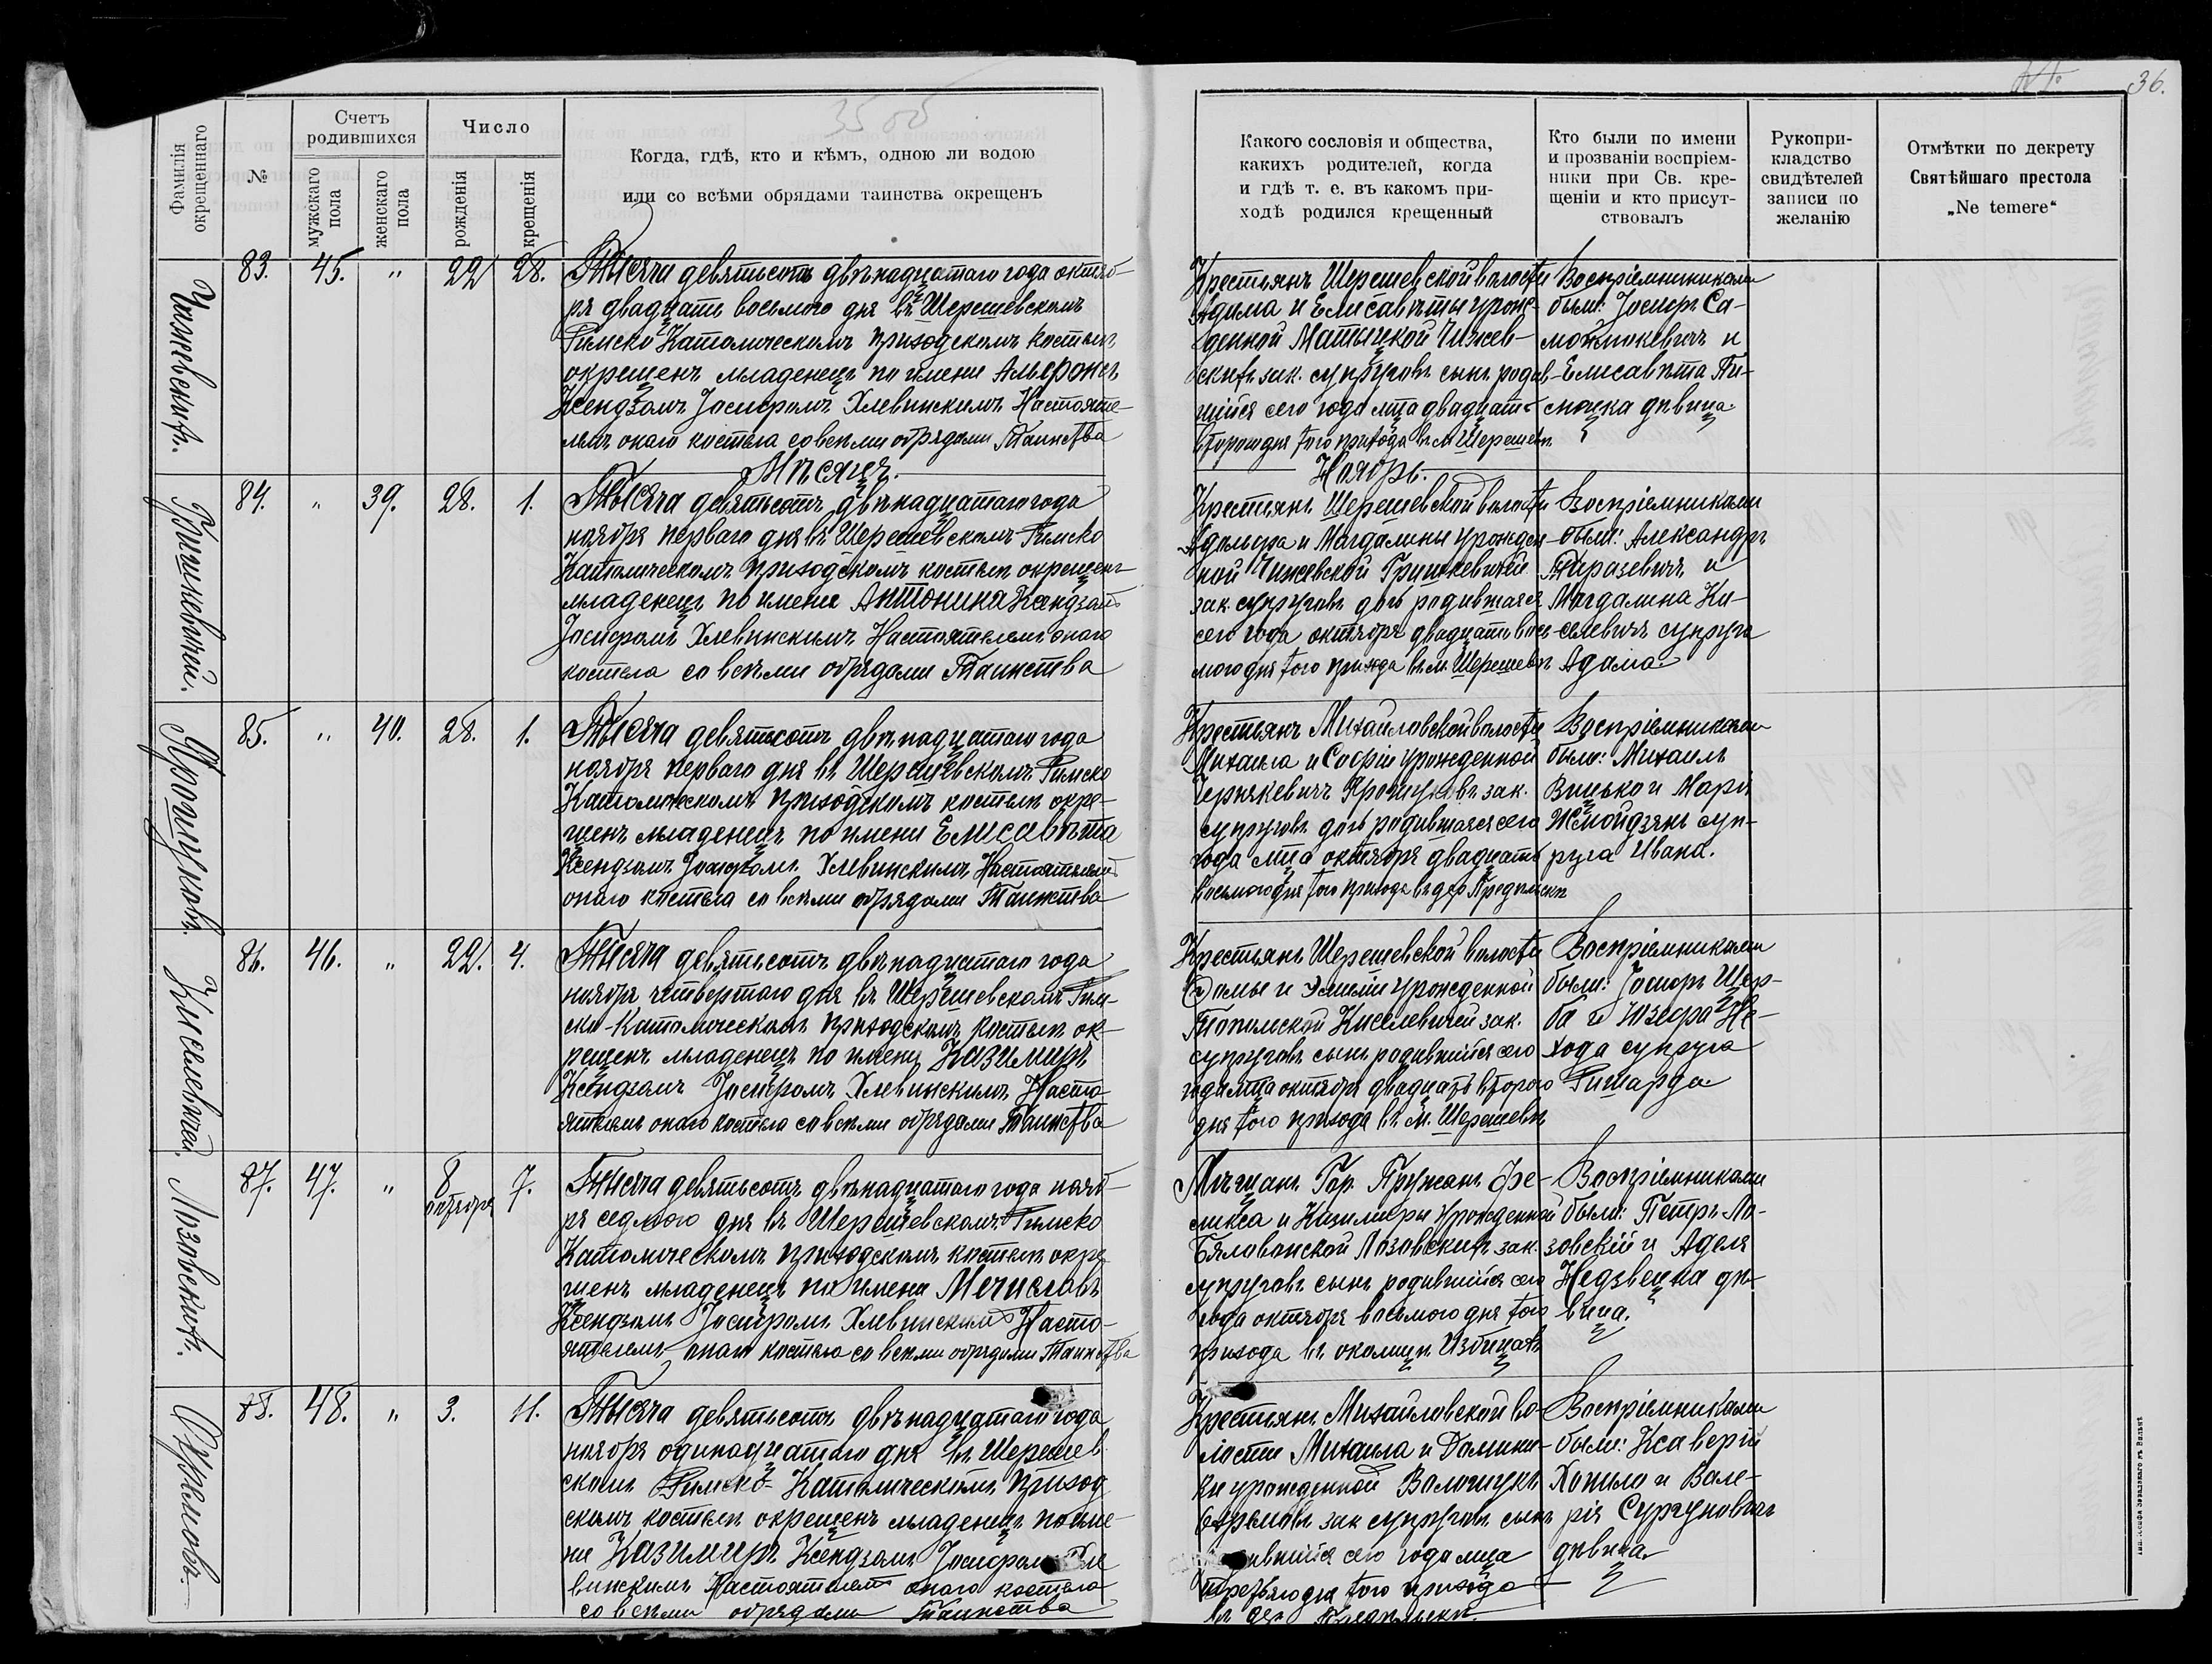 3505
36.
Фамилія окрещеннаго
№
Счетъ родившихся
мужскаго пола
женскаго пола
Число
рожденія
крещенія
Когда, гдѣ, кто и кѣмъ, одною ли водою
или со всѣми обрядами таинства окрещенъ
Какого сословія и общества,
какихъ родителей, когда
и гдѣ т. е. въ какомъ при-
ходѣ родился крещенный
Кто были по имени
и прозваніи воспріем-
ники при Св. кре-
щеніи и кто присут-
ствовалъ
Рукопри-
кладство
свидѣтелей
записи по
желанію
Отмѣтки по декрету
Святѣйшаго престола
„Ne temere“
Чижевскихъ.
83. 45. „ 22 28.
Тысяча девятьсотъ двѣнадцатаго года октяб-
ря двадцать восьмого дня въ Шерешевскомъ
Римско Католическомъ приходскомъ костелѣ
окрещенъ младенецъ по имени Альфонсъ
Ксендзомъ Іосифомъ Хлевинскимъ Настояте-
лемъ онаго костела со всѣми обрядами Таинства
Крестьянъ Шерешевской волости
Адама и Елисаветы урож-
денной Чижев-
скихъ зак. супруговъ сынъ родив-
шійся сего года мца двадцать
второго дня того прихода въ м. Шерешевѣ
Воспріемниками
были: Іосифъ Са-
мойлюкевичъ и
Елисавета
дѣвица
Мѣсяцъ.
Ноябрь.
Гришкевичей.
84. „ 39. 28. 1.
Тысяча девятьсотъ двѣнадцатаго года
ноября перваго дня въ Шерешевскомъ Римско
Католическомъ приходскомъ костелѣ окрещенъ
младенецъ по имени Антонина Ксендзомъ
Іосифомъ Хлевинскимъ Настоятелемъ онаго
костела со всѣми обрядами Таинства
Крестьянъ Шерешевской волости
Адольфа и Магдалины урожден-
ной Чижевской Гришкевичей
зак. супруговъ дочь родившаяся
сего года октября двадцать вось-
мого дня того прихода въ м. Шерешевѣ
Воспріемниками
были: Александръ
Тарасевичъ и
Магдалина Ки-
селевичъ супруга
Адама
Ярошуковъ.
85. „ 40. 28. 1.
Тысяча девятьсотъ двѣнадцатаго года
ноября перваго дня въ Шерешевскомъ Римско
Католическомъ приходскомъ костелѣ окре-
щенъ младенецъ по имени Елисавѣта
Ксендзомъ Іосифомъ Хлевинскимъ Настоятелемъ
онаго костела со всѣми обрядами Таинства
Крестьянъ Михайловской волости
Михаила и Софіи урожденной
Чернякевичъ Ярошуковъ зак.
супруговъ дочь родившаяся сего
года мца октября двадцать
восьмого дня того прихода въ дер.
Воспріемниками
были: Михаилъ
Вицько и Марія
Жмойдзякъ суп-
руга Ивана.
Киселевичей.
86. 46. „ 22. 4.
Тысяча девятьсотъ двѣнадцатаго года
ноября четвертаго дня въ Шерешевскомъ Рим-
ско-Католическомъ приходскомъ костелѣ ок-
рещенъ младенецъ по имени Казимиръ
Ксендзомъ Іосифомъ Хлевинскимъ Насто-
ятелемъ онаго костела со всѣми обрядами Таинства
Крестьянъ Шерешевской волости
Фомы и Эмиліи урожденной
Топольской Киселевичей зак.
супруговъ сынъ родившійся сего
года мца октября двадцать второго
дня того прихода въ м. Шерешевѣ
Воспріемниками
были: Іосифъ Щер-
ба и Юзефа Не-
хода супруга
Ришарда
Лозовскихъ.
87. 47. „ 8 октября 7.
Тысяча девятьсотъ двѣнадцатаго года нояб-
ря седмого дня въ Шерешевскомъ Римско
Католическомъ приходскомъ костелѣ окре
щенъ младенецъ по имени Мечиславъ
Ксендзомъ Іосифомъ Хлевинскимъ Насто-
ятелемъ онаго костела со всѣми обрядами Таинства
Мѣщанъ Гор. Пружанъ Фе-
ликса и Казимиры урожденной
Бяловонской Лозовскихъ зак.
супруговъ сынъ родившійся сего
года октября восьмого дня того
прихода въ околицѣ Избицахъ
Воспріемниками
были: Петръ Ло-
зовскій и Аделя
Недзвецка дѣ-
вица.
Охримовъ.
88. 48. „ 3. 11.
Тысяча девятьсотъ двѣнадцатаго года
ноября одинадцатаго дня въ Шерешев-
скомъ Римско-Католическомъ приход
скомъ костелѣ окрещенъ младенецъ по име-
ни Казимиръ Ксендзомъ Іосифомъ Хле
винскимъ Настоятелемъ онаго костела
со всѣми обрядами Таинства
Крестьянъ Михайловской во-
лости Михаила и Домини-
ки урожденной Волошукъ
Охримовъ зак супруговъ сынъ
родившійся сего года мца
третьяго дня того прихода
въ дер.
Воспріемниками
были: Ксаверій
Хопило и Вале-
рія Сургуновичъ
дѣвица